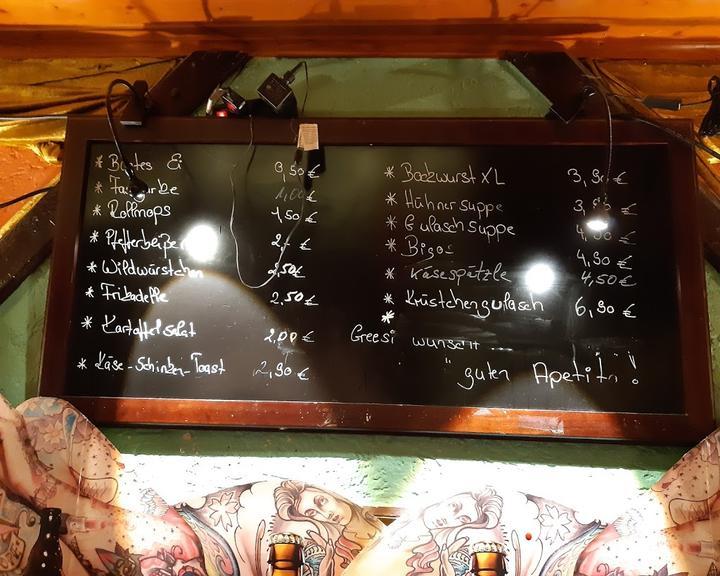 * Buntes Ei
* Rollmops 1,50 €
* Pfefferbeißer 2,- €
* Wildwürstchen 2,50 €
* Frikadelle 2.50 €
* Kartoffel salat 2,00 €
* Käse-Schinken-Toast 2,90 €
* Bockwurst XL 3,90 €
* Hühnersuppe
* Gulaschsuppe 4,90 €
* Bigos 4,90 €
* Käsespätzle 4,50 €
* Krüstchengulasch 6,90 €
* Greesi wünscht ...
" guten Apetit " !